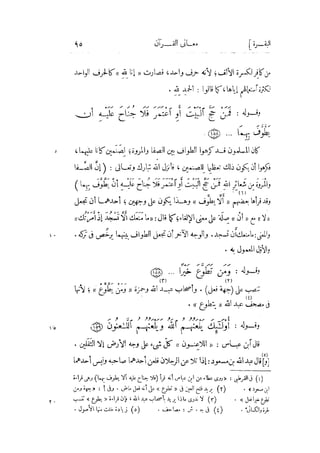 البقرة ] معانى القرآن ٩٥
من كافر لكسرة الألف؛ لأنه حرف واحد، فصارت « إنا لله » كالحرف الواحد
لكثرة استعمالهم إياها، كما قالوا : الحمد لله .
وقوله : فَمَنْ حَجَّ ٱلْبَيْتَ أَوِ ٱعْتَمَرَ فَلَا جُنَاحَ عَلَيْهِ أَن
يَطَّوَّفَ بِهِمَا ... ١٥٨
كان المسلمون قد كرهوا الطواف بين الصفا والمروة؛ لصنمين كانا عليهما، ٥
فكرهوا أن يكون ذلك تعظيما للصنمين، فأنزل الله تبارك وتعالى : ( إنّ الصَّفا
والمروة من شعائر الله فمن حج البيت أو اعتمر فلا جناح عليه أنْ يطّوف بهما )
وقد قرأها بعضهم « ألّا يطوف » وهذا يكون على وجهين؛ أحدهما أن تجعل
« لا » مع « أن » صلة على معنى الإلغاء؛ كما قال : « ما منعك ألّا تسجد إذ أمرتك »
والمعنى : ما منعك أن تسجد. والوجه الآخر أن تجعل الطواف بينهما يرخص فى تركه. ١٠
والأوّل المعمول به .
وقوله : وَمَن تَطَوَّعَ خَيْرًا ... ١٥٨
تنصب على (جهة فعل) . وأصحاب عبد الله وحمزة « ومن يطّوّع »؛ لأنها
فى مصحف عبد الله « يتطوع » .
وقوله : أُوْلَٰٓئِكَ يَلْعَنُهُمُ ٱللَّهُ وَيَلْعَنُهُمُ ٱللَّٰعِنُونَ ١٥٩ ١٥
قال ابن عباس : « اللاعنون » كلّ شىء على وجه الأرض إلا الثقلين .
و[قال عبد الله بن مسعود: إذا تلاعن الرجلان فلعن أحدهما صاحبه وليس أحدهما
(١) فى القرطبى : « روى عطاء عن ابن عباس أنه قرأ (فلا جناح عليه ألا يطوف بهما) وهى قراءة
ابن مسعود » . (٢) يريد فتح العين فى « تطوّع » على أنه فعل ماض . وفى أ : « جهة ومن